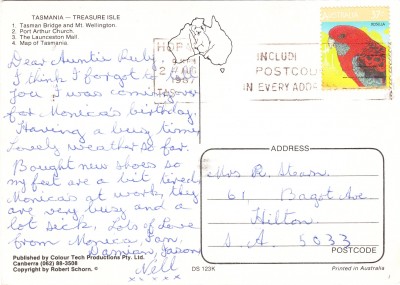 TASMANIA – TREASURE ISLE
1. Tasman Bridge and Mt. Wellington.
2. Port Arthur Church.
3. The Launceston Mall.
4. Map of Tasmania.
Dear Auntie Ruby.
I think I forgot to
you I was coming over
for Monica's birthday.
Having a busy time,
Lovely weather so far.
Bought new shoes so
my feet are a bit tired.
Monica's at work, they
are very busy and a
lot sick. Lots of Love
from Monica, Pam.
Damian, Jason
Nell
x x x x x
Published by Colour Tech Productions Pty. Ltd.
Canberra (062) 88-3508
Copyright by Robert Schorn.
DS 123K
HOB
1987
TAS
INCLUDE
POSTCODE
IN EVERY ADD
ROSELLA
ADDRESS
Mrs R. Stearn.
61, Bagot Ave
Hilton.
S. A. 5033
POSTCODE
Printed in Australia